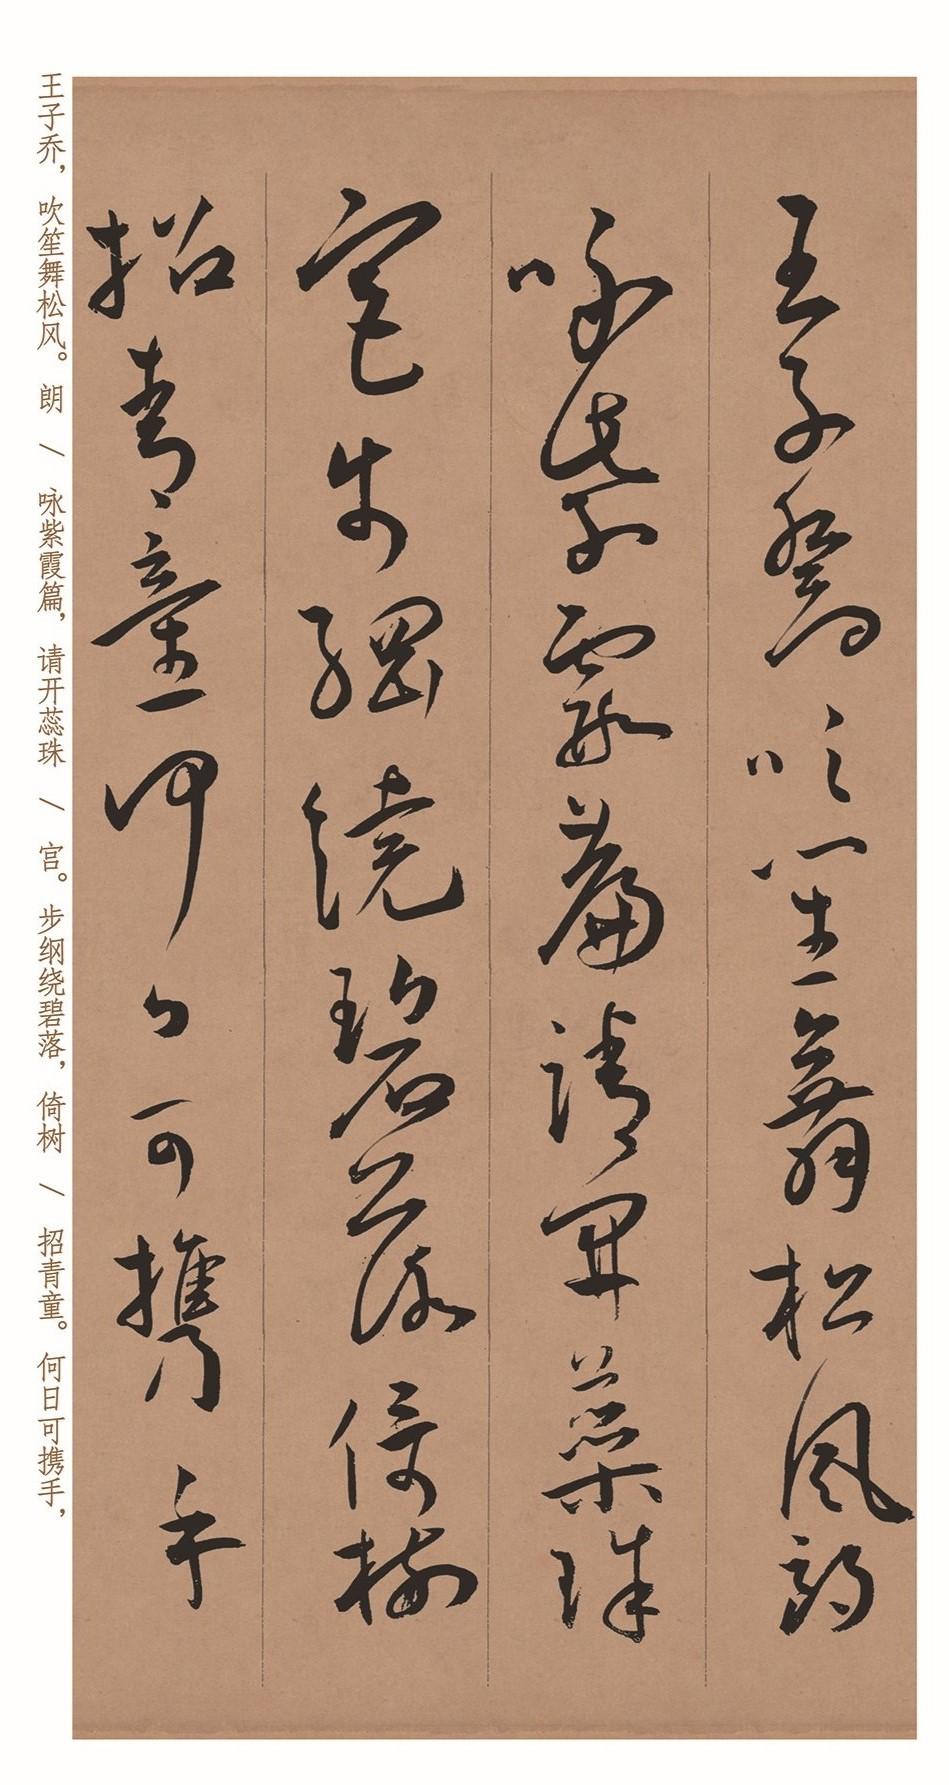 王子喬吹笙舞松風朗
咏紫霞篇請開蘂珠
宫步綱繞碧落倚樹
招青童何日可携手
王子乔，吹笙舞松风。朗 / 咏紫霞篇，请开蕊珠 / 宫。步纲绕碧落，倚树 / 招青童。何日可携手，